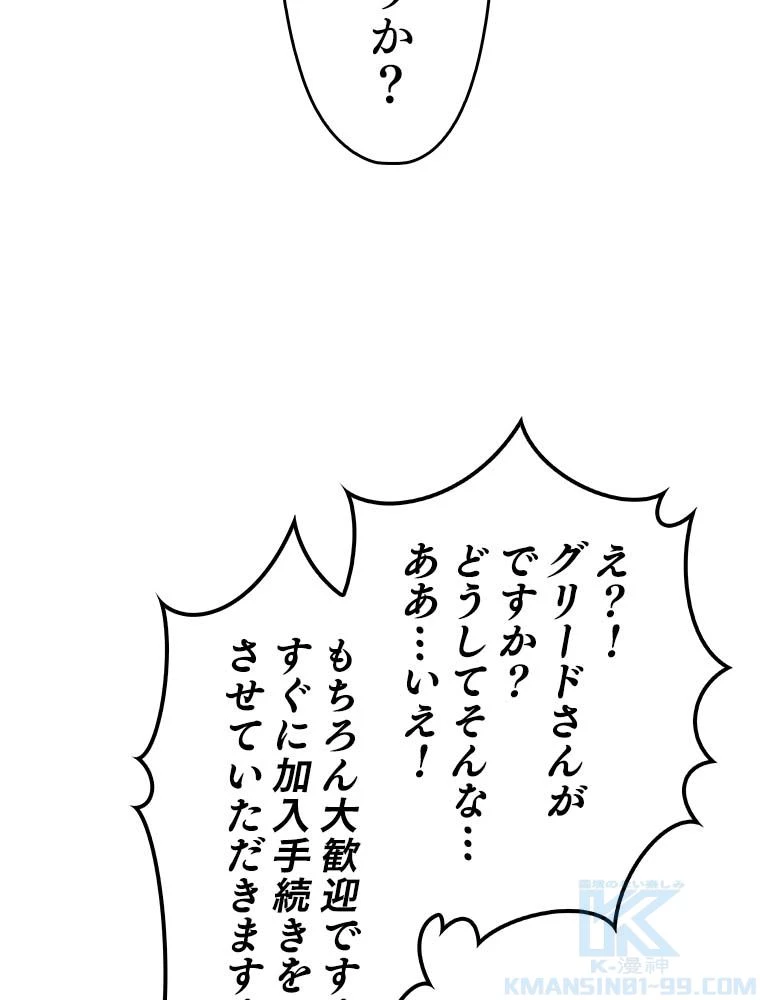 か？
え？！
グリードさんが
ですか？
どうしてそんな…
ああ…いえ！
もちろん大歓迎です
すぐに加入手続きを
させていただきます
K-漫神
KMANSIN01-99.COM